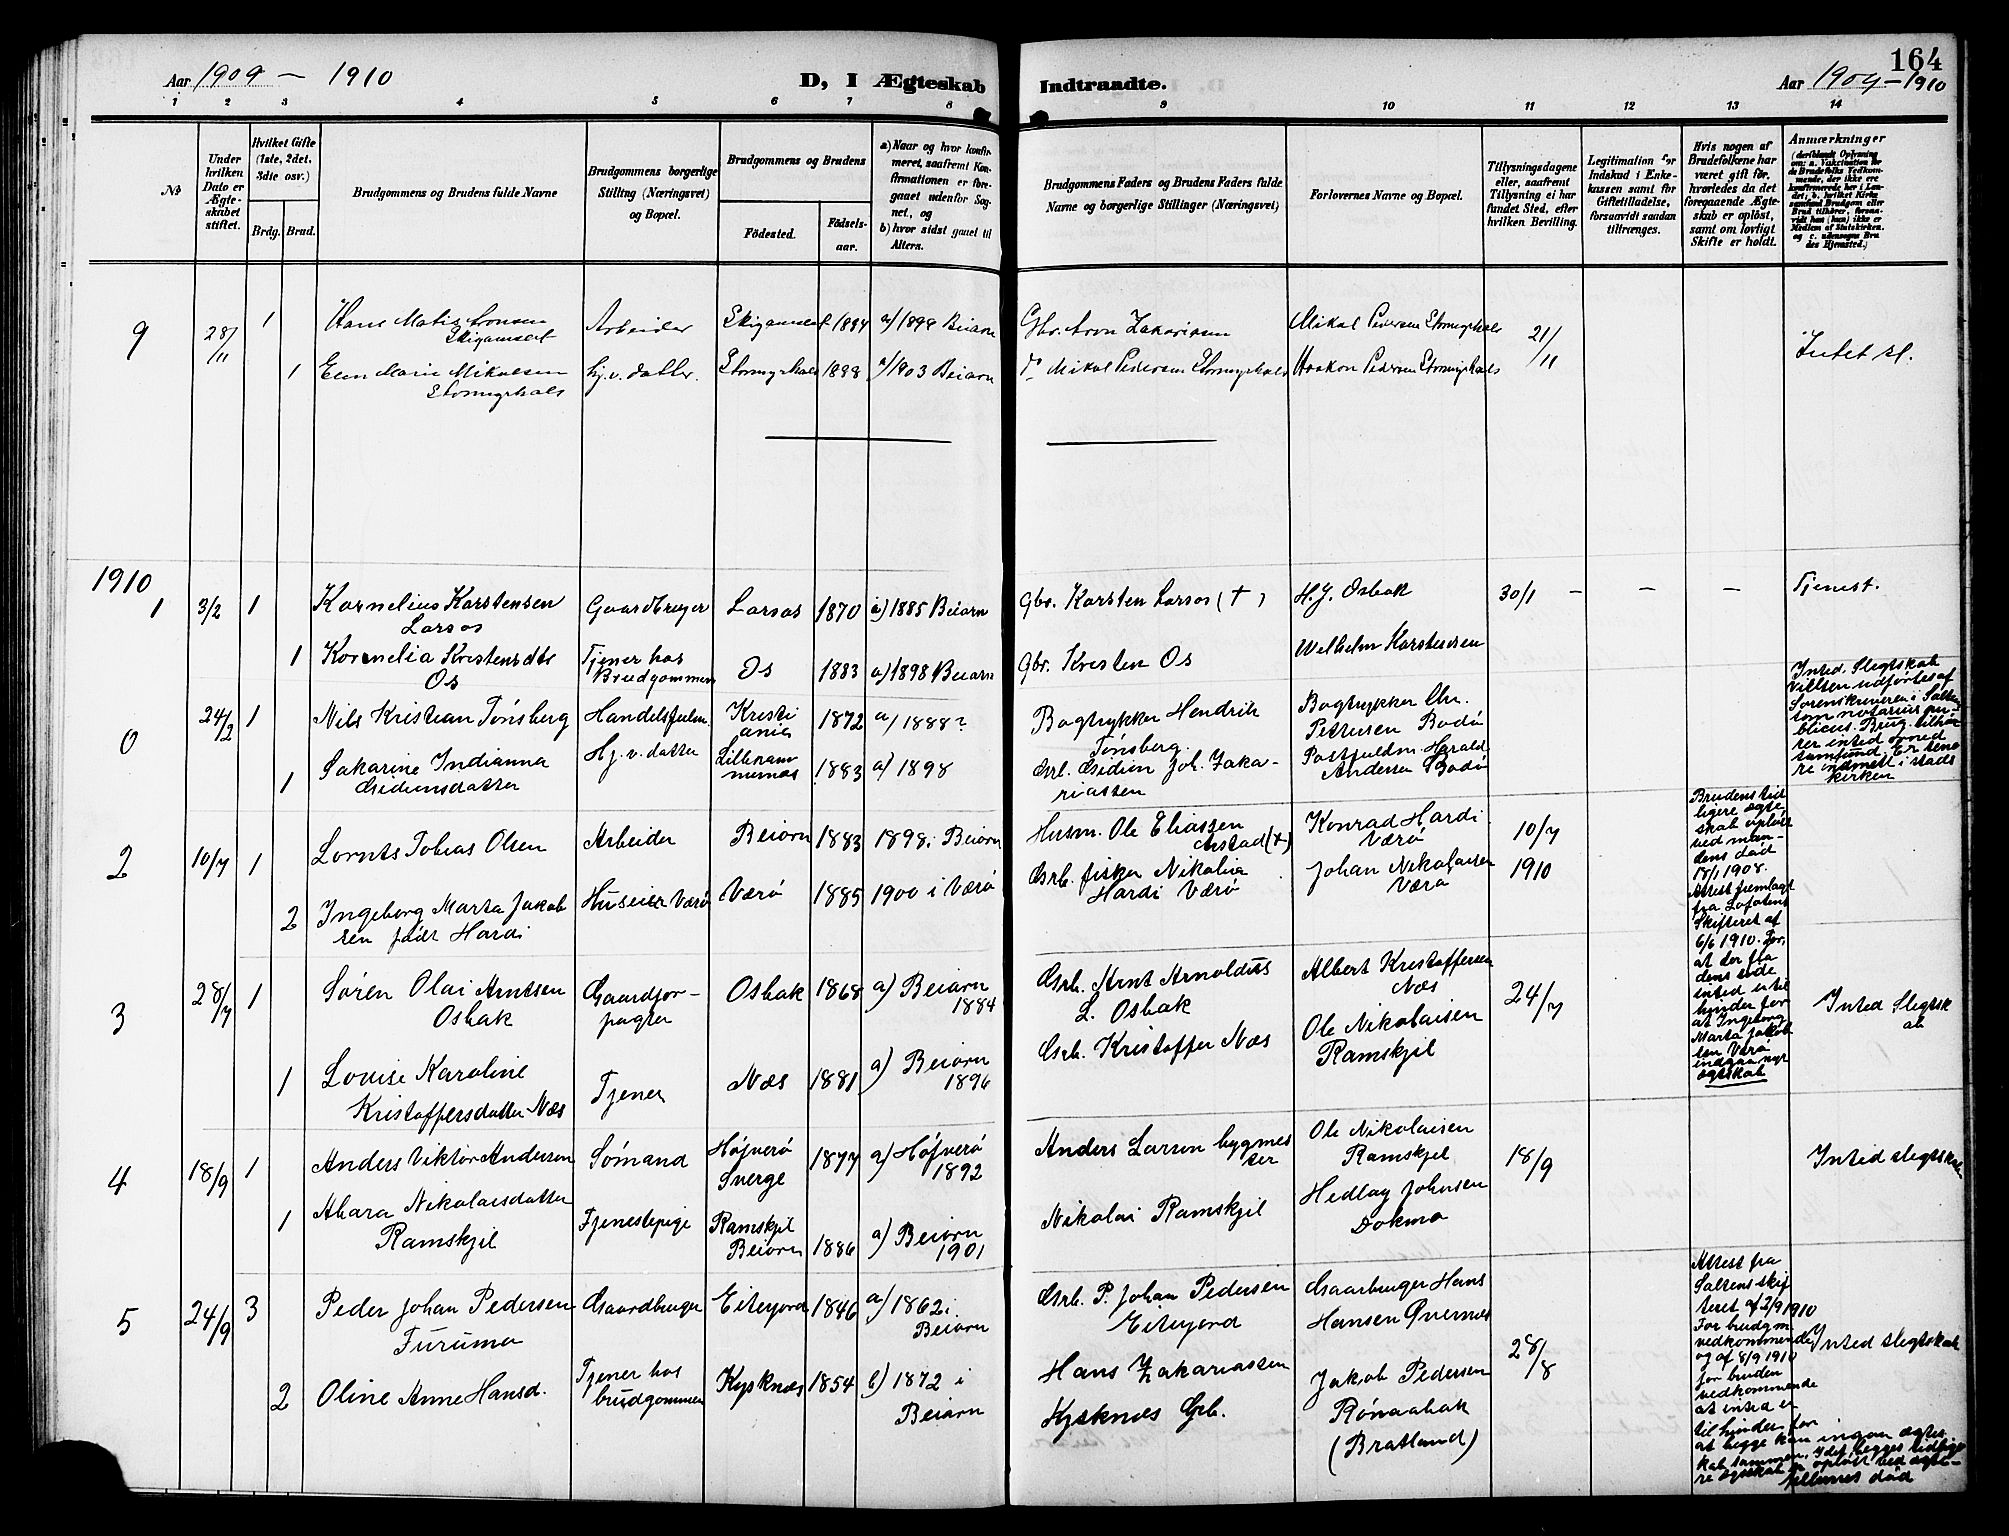 Aar 1909 – 1910
D, I Ægteskab
Indtraadte.
164
Aar 1909 – 1910
1 2 3 4 5 6 7 8 9 10 11 12 13 14
No
Under hvilken Dato er Ægteskabet stiftet.
Hvilket Gifte (1ste, 2det, 3die osv.)
Brdg. Brud.
Brudgommens og Brudens fulde Navne
Brudgommens borgerlige Stilling (Næringsvei) og Bopæl.
Brudgommens og Brudens
Födested.
Födselsaar.
a) Naar og hvor konfirmeret, saafremt Konfirmationen er foregaaet udenfor Sognet, og
b) hvor sidst gaaet til Alters.
Brudgommens Faders og Brudens Faders fulde Navne og borgerlige Stillinger (Næringsvei)
Forlovernes Navne og Bopæl.
Tillysningsdagene eller, saafremt Tillysning ei har fundet Sted, efter hvilken Bevilling.
Legitimation for Indskud i Enkekassen samt for Giftetilladelse, forsaavidt saadan tiltrænges.
Hvis nogen af Brudefolkene har været gift för, hvorledes da det foregaaende Ægteskab er oplöst, samt om lovligt Skifte er holdt.
Anmærkninger
9 28/11 1 Arbeider 1884 a) 1898 Beiarn
Mikal Pedersen 21/11
Elen Marie Mikalsen
1 1888 a) 1903 Beiarn
Mikal Pedersen Haakon Pedersen
Intet sl.
1910
1 3/2 1 Kornelius Karstensen Gaardbruger Larsos 1870 a) 1885 Beiarn Gbr. Karsten Larsos (+) H. J. Osbak 30/1 – – – Tjenest.
Larsos
1 Kornelia Kristensdtr Tjener hos Brudgommen Os 1883 a) 1898 Beiarn Gbr. Kristen Os Wilhelm Karstensen
Os
0 24/2 1 Nils Kristian Tønsberg Handelsfuldm. Kristiania 1872 a) 1888? Bogtrykker Hendrik Tønsberg. Bogtrykker Chr. Pettersen Bodø
1 Sakarine Indianna Gidionsdatter Hj. v. datter 1883 a) 1898 Grb. Gidion Joh. Zakariassen Postfuldm. Harald Andersen Bodø
Intid. Slegtskab
Vilsen udførtes af
Sorenskriveren i Salten
som notarius publicus.
2 10/7 1 Lornts Tobias Olsen Arbeider Beiarn 1883 1898 i Beiarn Husm. Ole Eliassen (+) Konrad Hardi Værø 10/7
2 Ingeborg Marta Jakobsen født Hardi Værø Værø 1885 1900 i Værø Grb. fisker Nikolai Hardi Værø Johan Nikolaisen Værø 1910
Brudens tidligere ægteskab opløst ved mandens død 18/1 1908.
Attest fremlagt fra Lofotens Skifteret af 6/6 1910.
intid er til hinder for at Ingeborg Marta Jakobsen Værø indgaar nyt ægtskab
3 28/7 1 Søren Olai Arntsen Osbak Gaardforpagter Osbak 1868 a) Beiarn 1884 Grb. Arnt Arnoldus L. Osbak Albert Kristoffersen Næs 24/7 Intid Slegtskab
1 Lovise Karoline Kristoffersdatter Næs Tjener Næs 1881 a) Beiarn 1896 Grb. Kristoffer Næs Ole Nikolaisen Ramskjil
4 18/9 1 Anders Viktor Anderson Sømand Højnerø Sverge 1877 a) Højnerø 1892 Anders Larson bygmester Ole Nikolaisen Ramskjil 18/9 Intid slegtskab
1 Nikolaisdatter Ramskjil Tjenestepige Ramskjil Beiarn 1886 a) Beiarn 1901 Nikolai Ramskjil Hedlay Johnsen Dokmo
5 24/9 3 Peder Johan Pedersen Furumo Gaardbruger Eiterjord 1846 a) 1862 i Beiarn Grb. P. Johan Pedersen Eiterjord Gaarbruger Hans Hansen Qvernes 28/8 Intid slegtskab
2 Oline Anne Hansd. Tjener hos brudgommen Kysknæs 1854 b) 1872 i Beiarn Hans Zakariassen Kysknæs Grb. Jakob Pedersen Rønaabak (Bratland)
Attest fra Saltens skifteret af 2/9 1910
For brudgm. vedkommende og af 8/9 1910 for bruden vedkommende at intid er til hinder for at begge kan ingaa ægteskab sammen, idet begges tidligere ægteskab er opløst ved ægtefellernes død